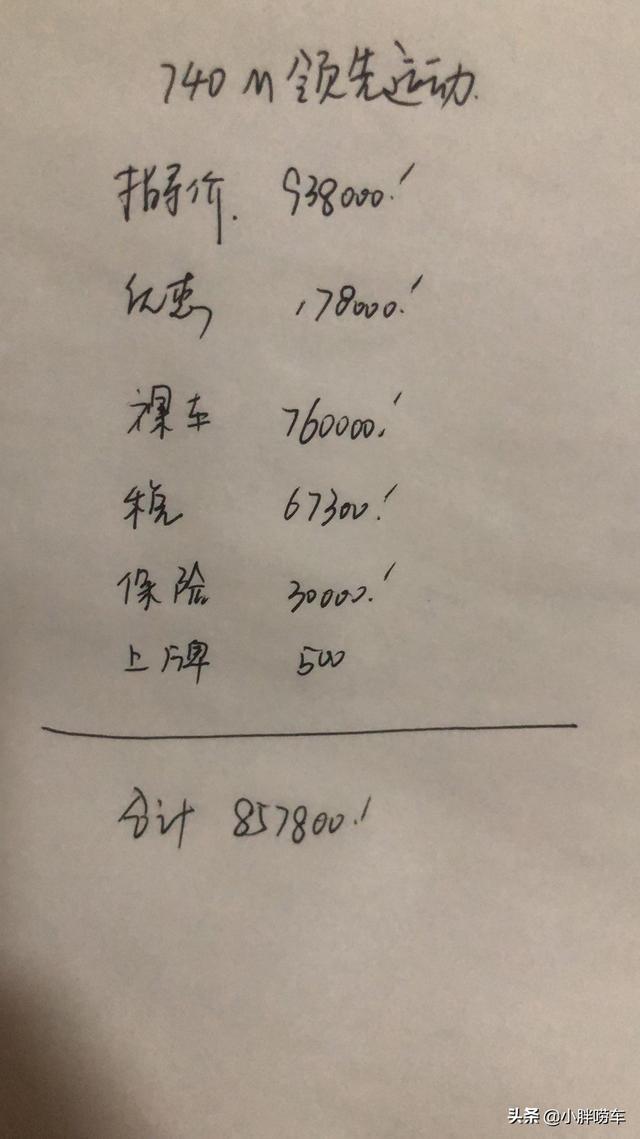 740 M 领先运动.
指导价. 938000.'
优惠 178000.'
裸车 760000.'
税 67300.'
保险 30000.'
上牌 500
合计 857800.'
头条 @小胖唠车